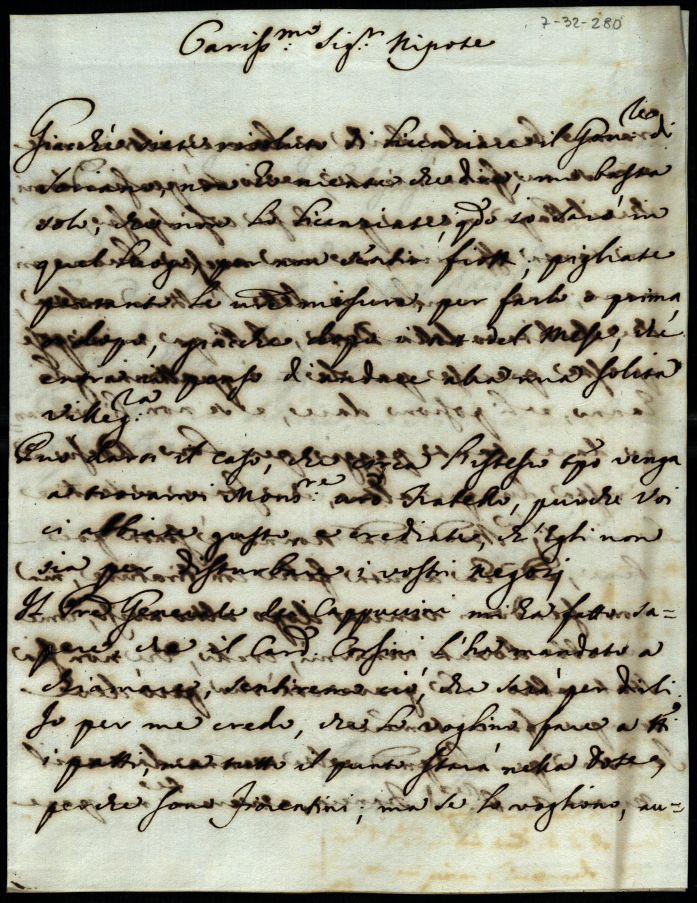 7-32-280
Cariss.mo Sig.r Nipote
Giacchè siete risoluto di licenziare il Gover.re di
Soriano, non occorre che dica, mi basta
solo, che non lo licenziate, q.do io sarò in
quel luogo, per non sentir fiotti, pigliate
pertanto le vre misure, per farlo o prima,
o dopo, giacchè dopo i sette del Mese, che
entra io penso di andare alla mia solita
villeg.ra
Può darsi il caso, che circa l'istesso tpo venga
a trovarvi Mons.re vro Fratello, purchè voi
ci abbiate gusto, e crediate, ch'Egli non
sia per disturbare i vostri negozj
Il Pre Generale dei Cappuccini mi ha fatto sa=
pere, che il Card. Corsini l'ha mandato a
chiamare, sentiremo ciò, che sarà per dirli
Io per me credo, che lo voglino fare a tti
i patti, ma tutto il punto starà nella dote,
perche sono Fiorentini; ma se lo vogliono, au=